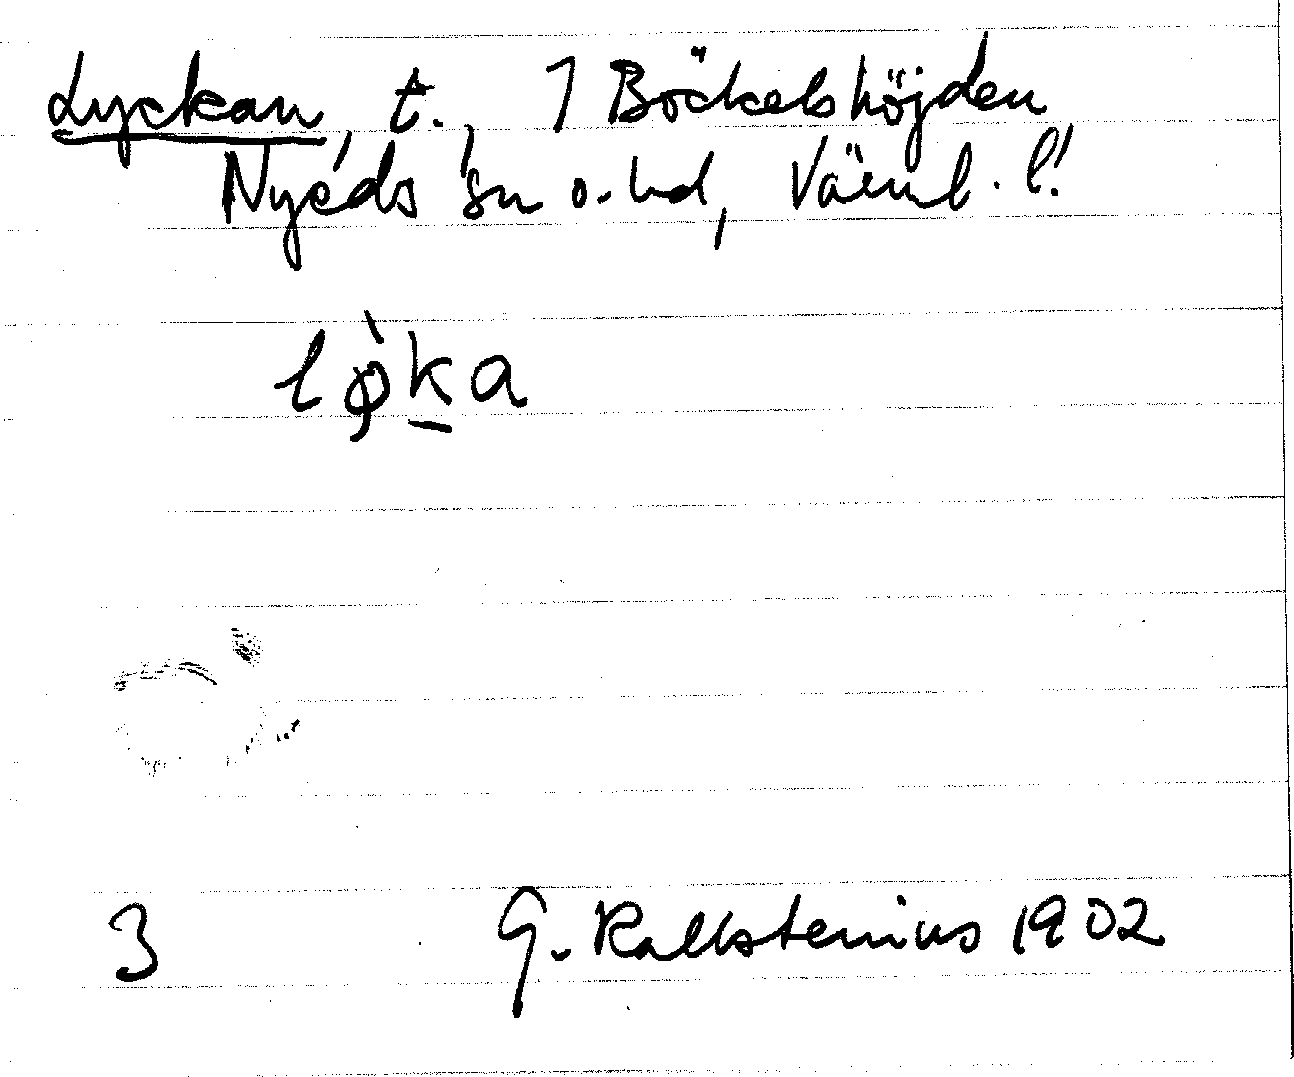 Lyckan, t., 1 Böckelshöjden
Nyeds sn o. hd, Värml. l.
lø̀k̠a
3 G. Kallstenius 1902